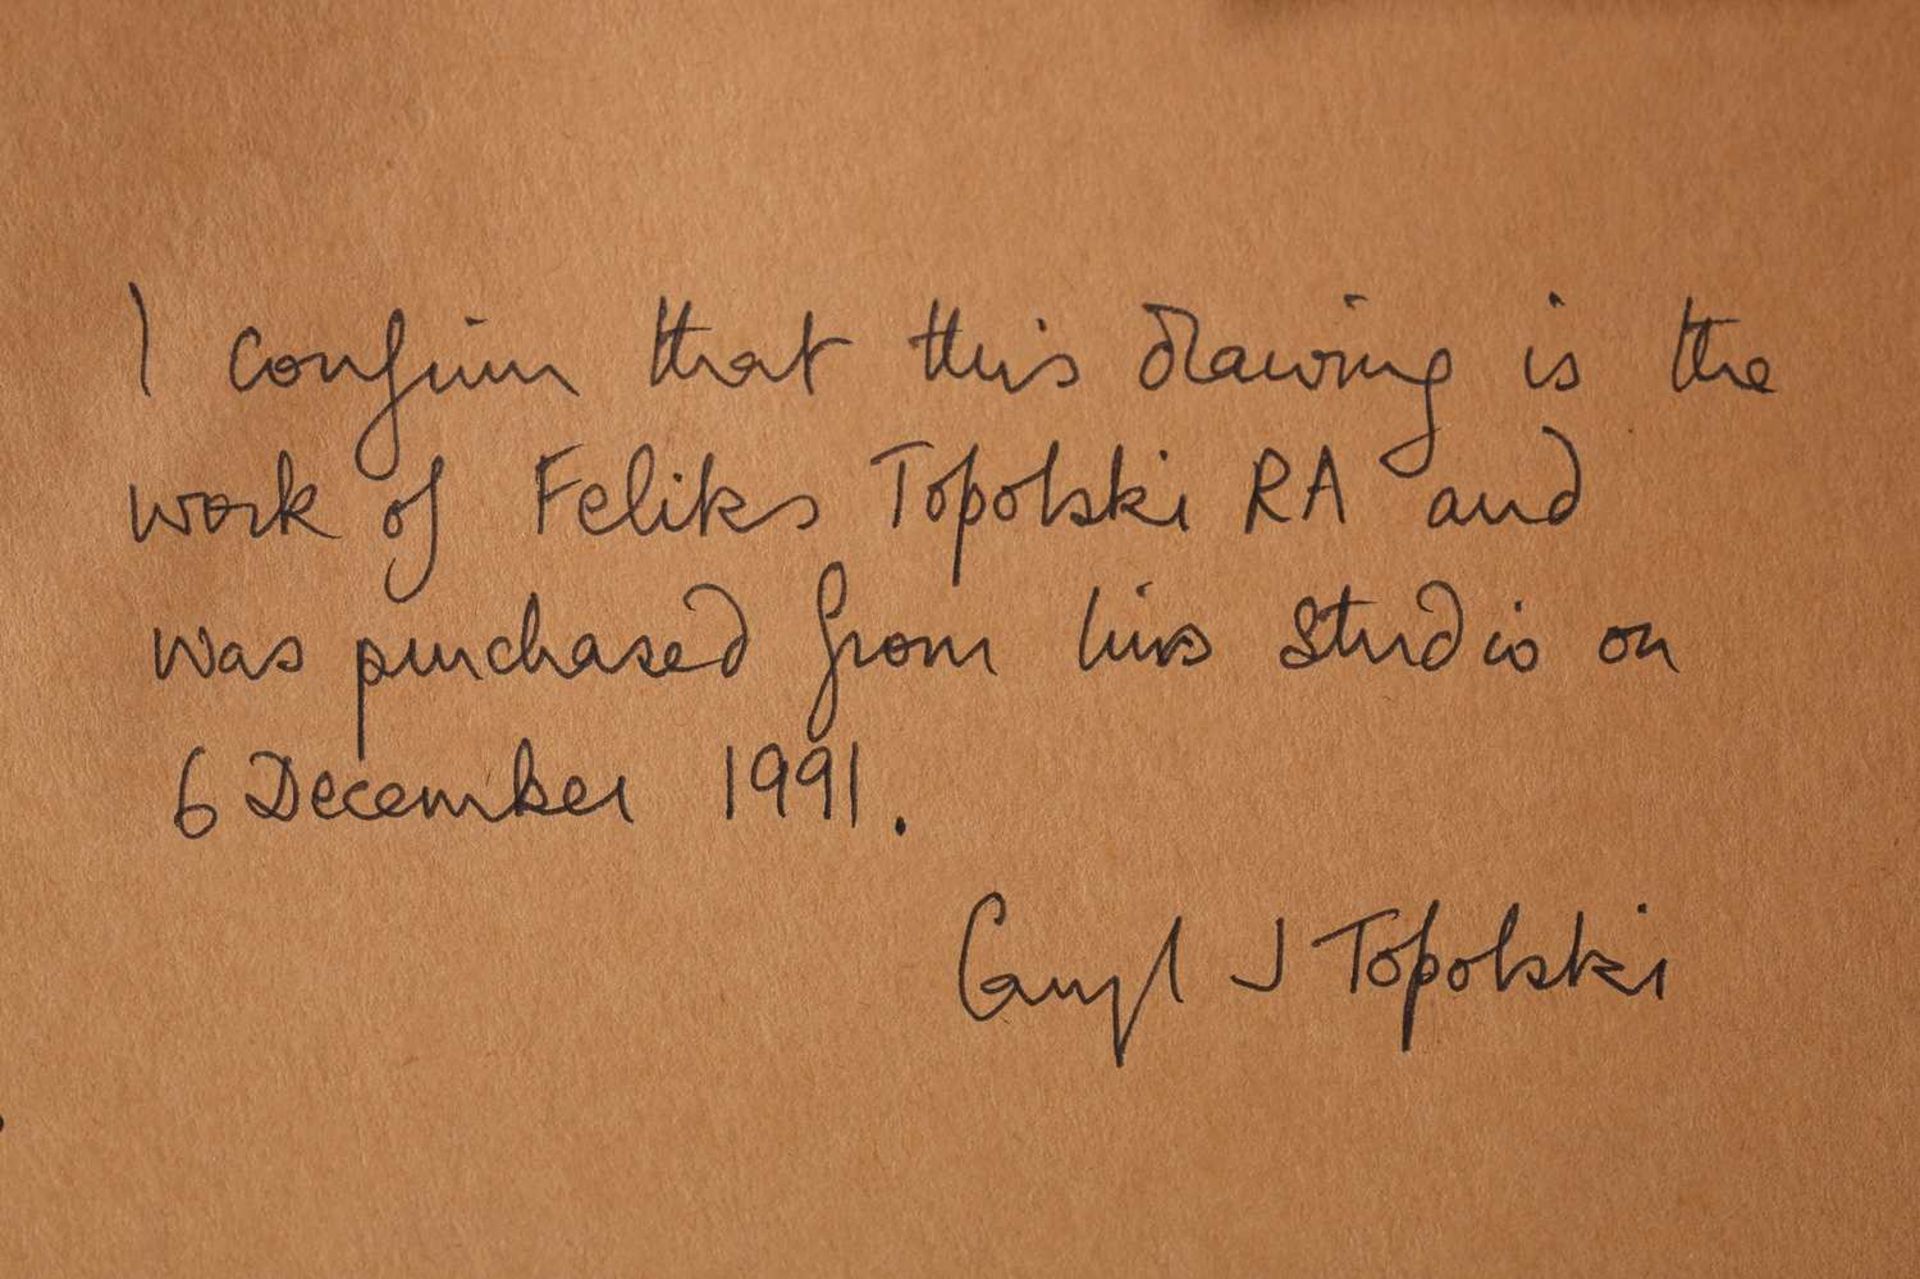 I confirm that this drawing is the
work of Feliks Topolski RA and
was purchased from his studio on
6 December 1991.
Caryl J Topolski